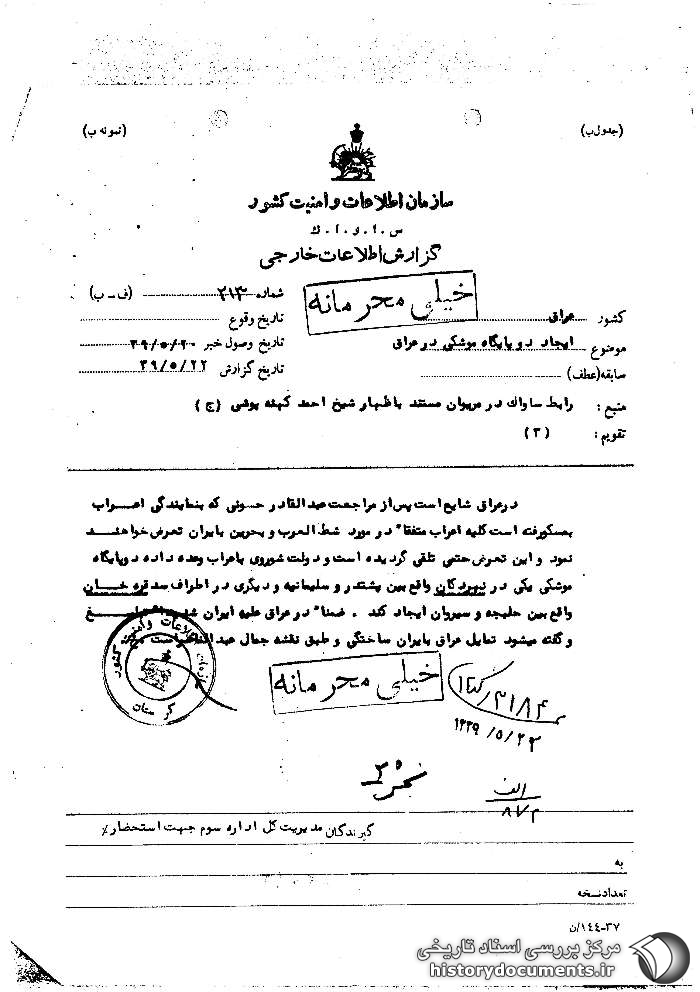 (جدول ب)
(نمونه ب)
سازمان اطلاعات و امنیت کشور
س . ا . و . ا . ك
گزارش اطلاعات خارجی
خیلی محرمانه
شماره ۲۱۳ (ف - ب)
کشور عراق
تاریخ وقوع
موضوع ایجاد دو پایگاه موشکی در عراق
تاریخ وصول خبر ۳۹/۵/۲۰
سابقه (عطف)
تاریخ گزارش ۳۹/۵/۲۲
منبع : رابط ساواك در مریوان مستند باظهار شیخ احمد کهنه پوشی (ج)
تقویم : (۳)
در عراق شایع است پس از مراجعت عبدالقادر حسونی که بنمایندگی اعراب
بمسکو رفته است کلیه اعراب متفقاً در مورد شط العرب و بحرین بایران تعرض خواهند
نمود و این تعرض حتمی تلقی گردیده است و دولت شوروی باعراب وعده داده دو پایگاه
موشکی یکی در واقع بین پشتدر و سلیمانیه و دیگری در اطراف سد قره خان
واقع بین حلبجه و سیروان ایجاد کند . ضمناً در عراق علیه ایران
و گفته میشود تمایل عراق بایران ساختگی و طبق نقشه جمال عبدالناصر است
سازمان اطلاعات و امنیت کشور
کردستان
خیلی محرمانه
۳۱۸۴
۱۳۳۹/۵/۲۳
الف
۸۷۲
گیرندگان مدیریت کل اداره سوم جهت استحضار٪
به
تعداد نسخه
۳۷-۱۴۴/ن
مرکز بررسی اسناد تاریخی
historydocuments.ir